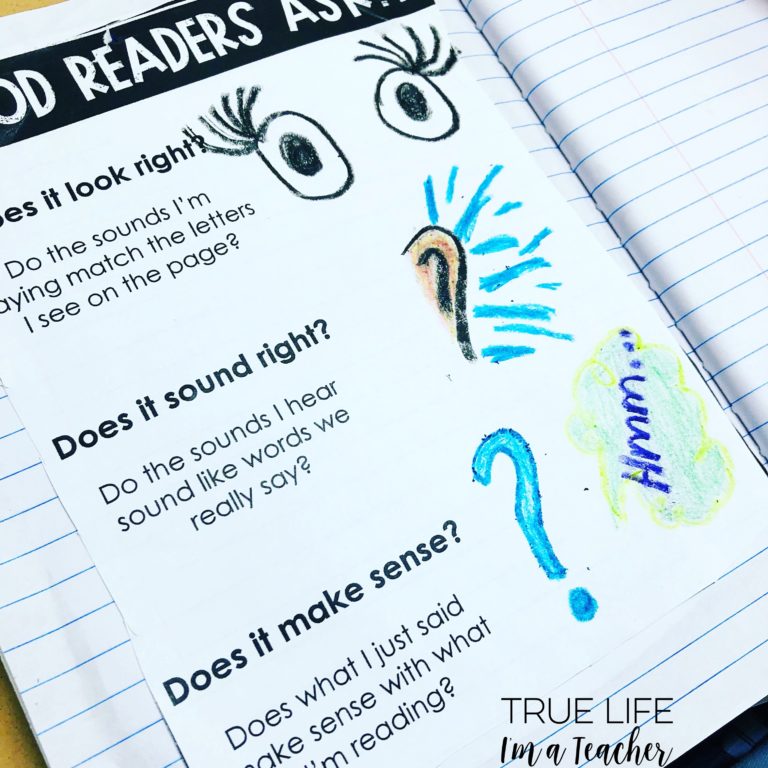 OD READERS ASK...
oes it look right?
Do the sounds I'm
aying match the letters
I see on the page?
Does it sound right?
Do the sounds I hear
sound like words we
really say?
Hmmm...
?
Does it make sense?
Does what I just said
ake sense with what
I'm reading?
TRUE LIFE
I'm a Teacher